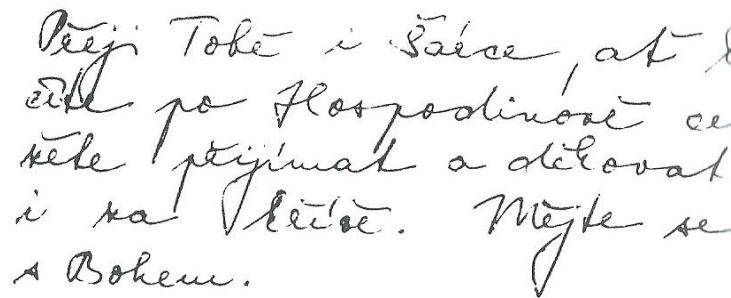 Přeji Tobě i Šárce, ať k
číte po Hospodinově ce
žete přijímat a děkovat
i za kříže. Mějte se
s Bohem.